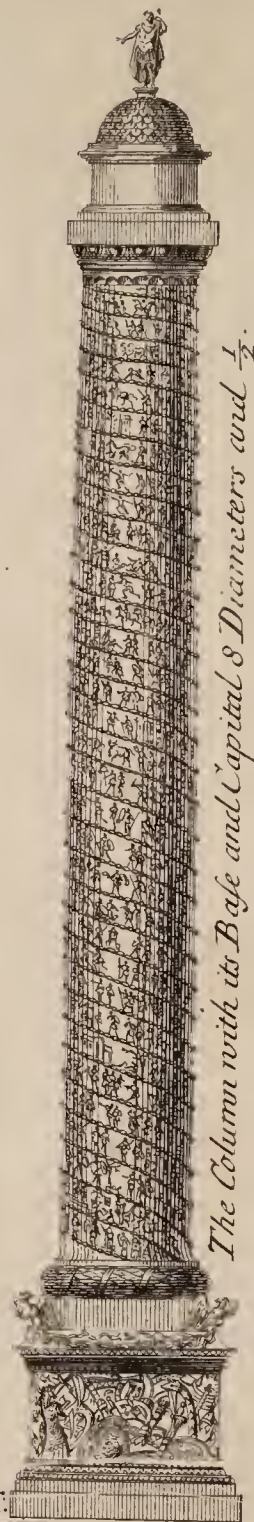 The Column with its Baſe and Capital 8 Diameters and 1/2.